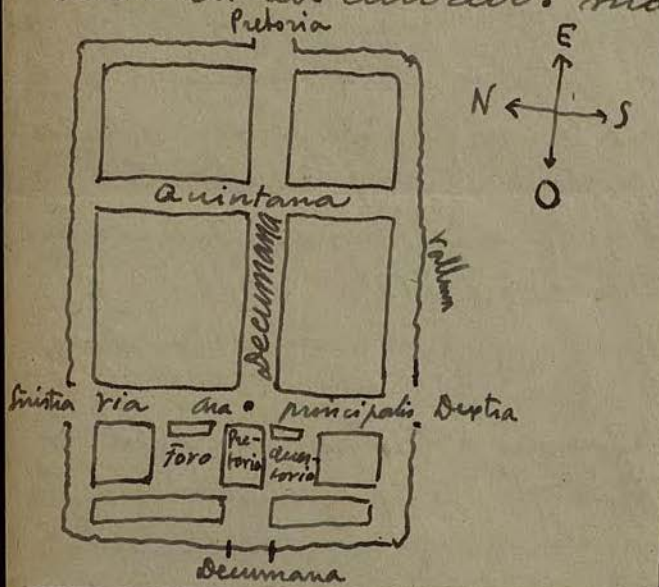 Pretoria
E
N
S
O
Quintana
Decumana
Vallum
Via Ara principalis Dextra
Foro
Pre-
toria
toria
Decumana